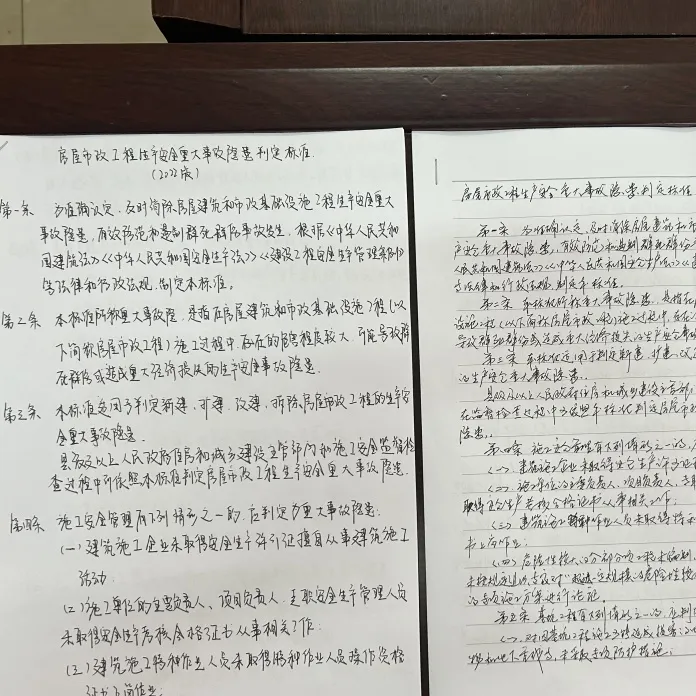 房屋市政工程生产安全重大事故隐患判定标准
(2022版)
第一条 为准确认定、及时消除房屋建筑和市政基础设施工程生产安全重大
事故隐患，有效防范和遏制群死群伤事故发生，根据《中华人民共和
国建筑法》《中华人民共和国安全生产法》《建设工程安全生产管理条例》
等法律和行政法规，制定本标准。
第二条 本标准所称重大事故隐患，是指在房屋建筑和市政基础设施工程（以
下简称房屋市政工程）施工过程中，存在的危害程度较大、可能导致群
死群伤或造成重大经济损失的生产安全事故隐患。
第三条 本标准适用于判定新建、扩建、改建、拆除房屋市政工程的生产安
全重大事故隐患。
县级及以上人民政府住房和城乡建设主管部门和施工安全监督检
查过程中可依照本标准判定房屋市政工程生产安全重大事故隐患。
第四条 施工安全管理有下列情形之一的，应判定为重大事故隐患：
（一）建筑施工企业未取得安全生产许可证擅自从事建筑施工
活动；
（二）施工单位的主要负责人、项目负责人、专职安全生产管理人员
未取得安全生产考核合格证书从事相关工作；
（三）建筑施工特种作业人员未取得特种作业人员操作资格
证书上岗作业；
房屋市政工程生产安全重大事故隐患判定标准
第一条 为准确认定、及时消除房屋建筑和市
产安全重大事故隐患，有效防范和遏制群死群伤
人民共和国建筑法》《中华人民共和国安全生产法》《
等法律和行政法规，制定本标准。
第二条 本标准所称重大事故隐患，是指在
设施工程（以下简称房屋市政工程）施工过程中，存在
导致群死群伤或造成重大经济损失的生产安全事故
第三条 本标准适用于判定新建、扩建、改
的生产安全重大事故隐患。
县级及以上人民政府住房和城乡建设主管部
在监督检查过程中可依照本标准判定房屋市政
隐患。
第四条 施工安全管理有下列情形之一的，
（一）建筑施工企业未取得安全生产许可证
（二）施工单位的主要负责人、项目负责人、专职
取得安全生产考核合格证书从事相关工作；
（三）建筑施工特种作业人员未取得特种
书上岗作业；
（四）危险性较大的分部分项工程未编制、
未按规定组织专家对“超过一定规模的危险性较大
的专项施工方案进行论证。
第五条 基坑工程有下列情形之一的，应判
（一）对因基坑工程施工可能造成损害的
地下 未采取专项防护措施；